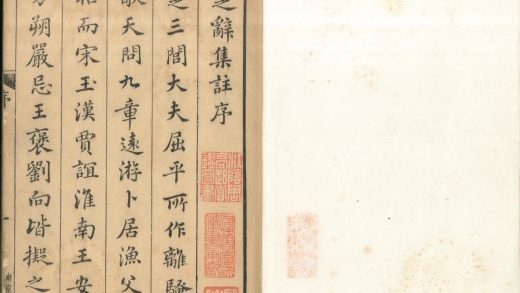 辭集註序
之三閭大夫屈平所作離騷
歌天問九章遠游卜居漁父
招而宋玉漢賈誼淮南王安
朔嚴忌王褒劉向皆擬之
序